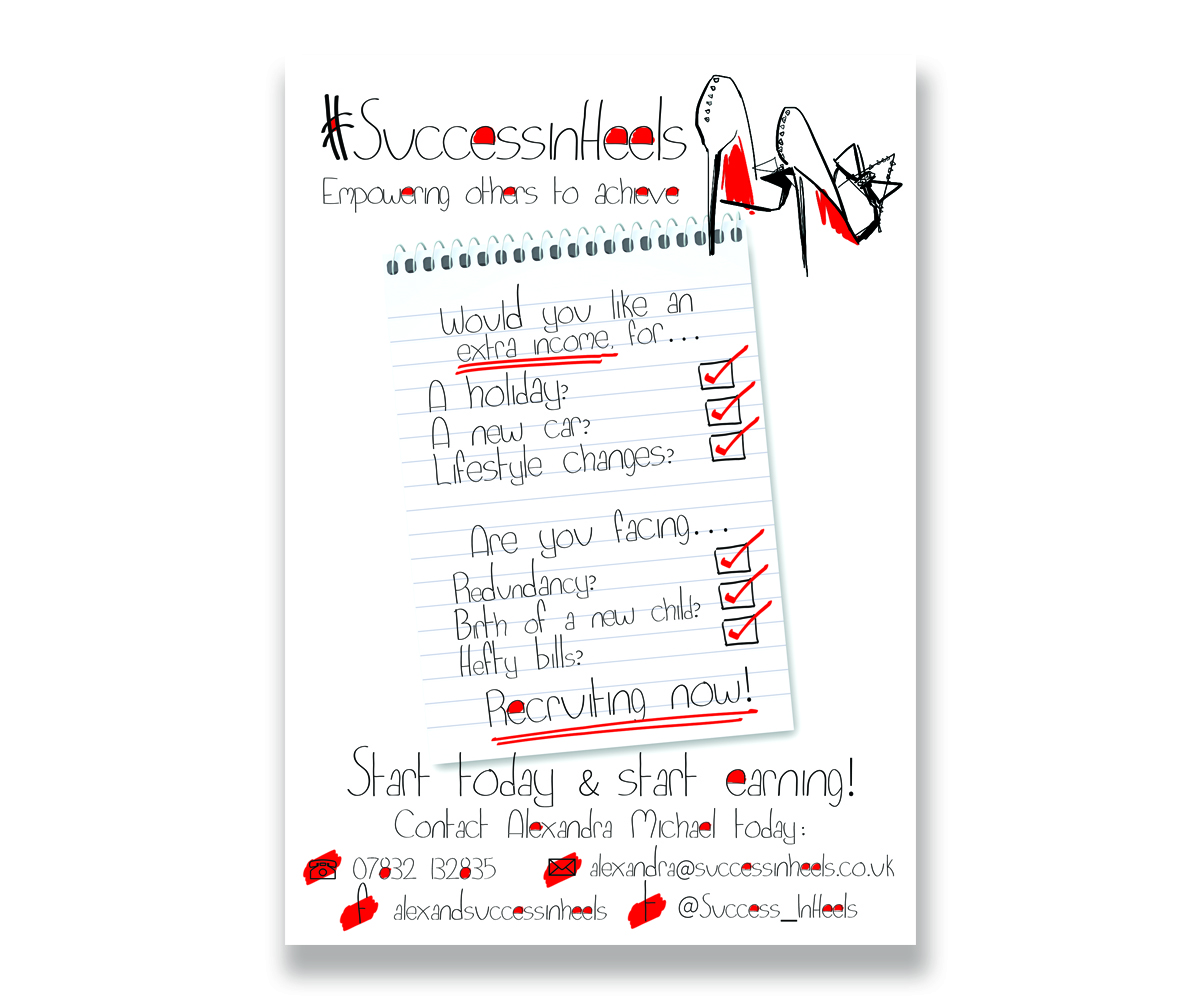 #SuccessInHeels
Empowering others to achieve
Would you like an
extra income, for...
A holiday?
A new car?
Lifestyle changes?
Are you facing...
Redundancy?
Birth of a new child?
Hefty bills?
Recruiting now!
Start today & start earning!
Contact Alexandra Michael today:
07832 132835
alexandra@successinheels.co.uk
f alexandsuccessinheels
t @Success_InHeels